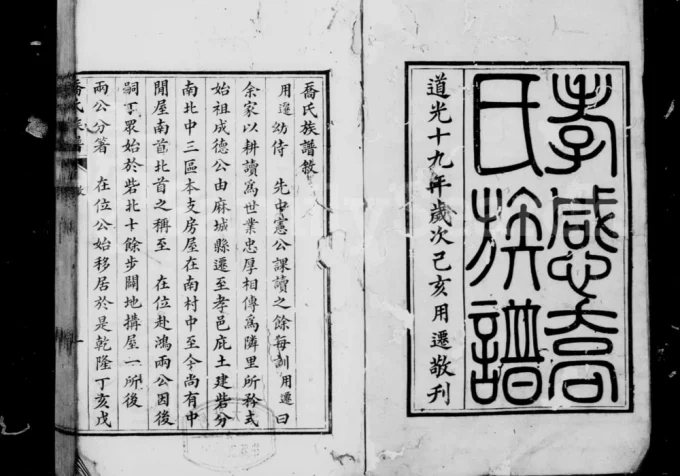 孝感喬
氏族譜
道光十九年歲次己亥用遷敬刊
喬氏族譜敘
用遷幼侍 先中憲公課讀之餘每訓 用遷曰
余家以耕讀為世業忠厚相傳為隣里所矜式
始祖成德公由麻城縣遷至孝邑庇土建砦分
南北中三區本支房屋在南村中至今尚有中
聞屋南首北首之稱至 在位赴鴻兩公因後
嗣丁眾始於砦北十餘步闢地搆屋一所後
兩公分箸 在位公始移居於是乾隆丁亥戊
喬氏族譜 敘 一